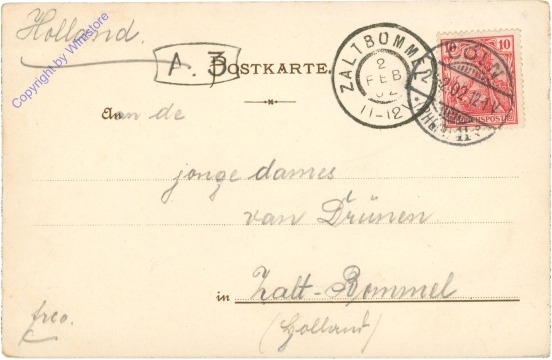 Holland.
Copyright by Wimstore
A. 3
POSTKARTE.
ZALTBOMMEL
2
FEB
02
11-12
10
CÖLN
An
aan de
jonge dames
van Drünen
in Zalt-Bommel
(Holland)
freo.